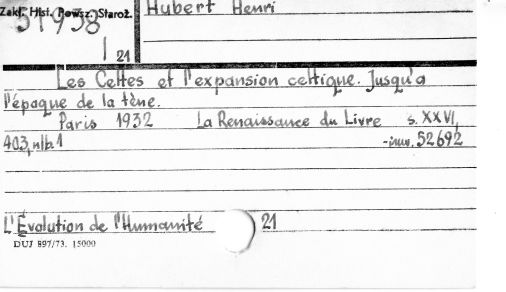 Zakł. Hist. Powsz. Staroż. Hubert Henri
51938
| 21
Les Celtes et l'expansion celtique. Jusqu'a
l'époque de la tène.
Paris 1932 La Renaissance du Livre s. XXVI,
403, nlb. 1 -inw. 52692
L'Évolution de l'Humanité 21
DUJ 897/73. 15000